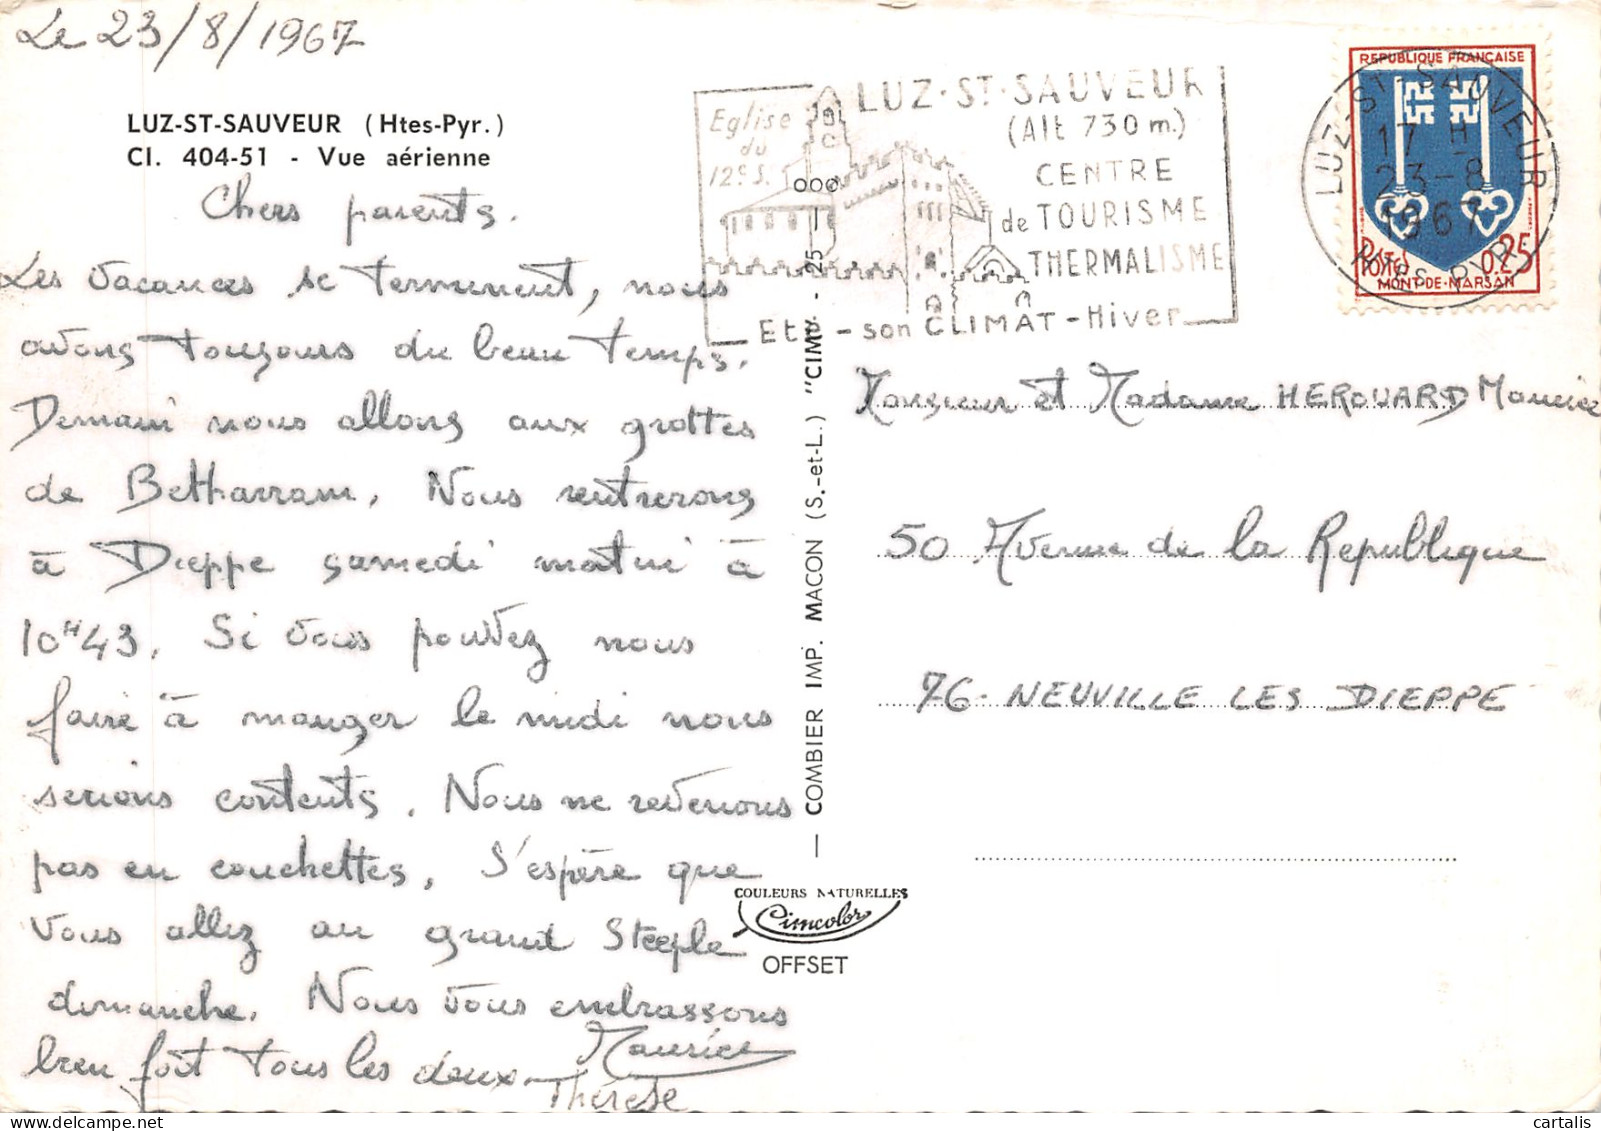 Le 23/8/1967
LUZ-ST-SAUVEUR (Htes-Pyr.)
CI. 404-51 - Vue aérienne
Chers parents.
Les vacances se terminent, nous
avons toujours du beau temps.
Demain nous allons aux grottes
de Betharram. Nous rentrerons
à Dieppe samedi matin à
10H43. Si vous pouvez nous
faire à manger le midi nous
serions contents. Nous ne revenons
pas en couchettes. J'espère que
vous allez au grand Steeple
dimanche. Nous vous embrassons
bien fort tous les deux.
Maurice
Thérèse
COMBIER IMP. MACON (S.-et-L.) "CIM"
25
COULEURS NATURELLES
Cimcolor
OFFSET
Eglise
du
12e S.
LUZ·ST·SAUVEUR
(Alt 730 m.)
CENTRE
de TOURISME
THERMALISME
Eté - son CLIMAT - Hiver
REPUBLIQUE FRANÇAISE
POSTES 0.25
MONT-DE-MARSAN
LUZ-ST-SAUVEUR
17 H
23-8
1967
Htes PYR.
Monsieur et Madame HEROUARD Maurice
50 Avenue de la Republique
76- NEUVILLE LES DIEPPE
cartalis